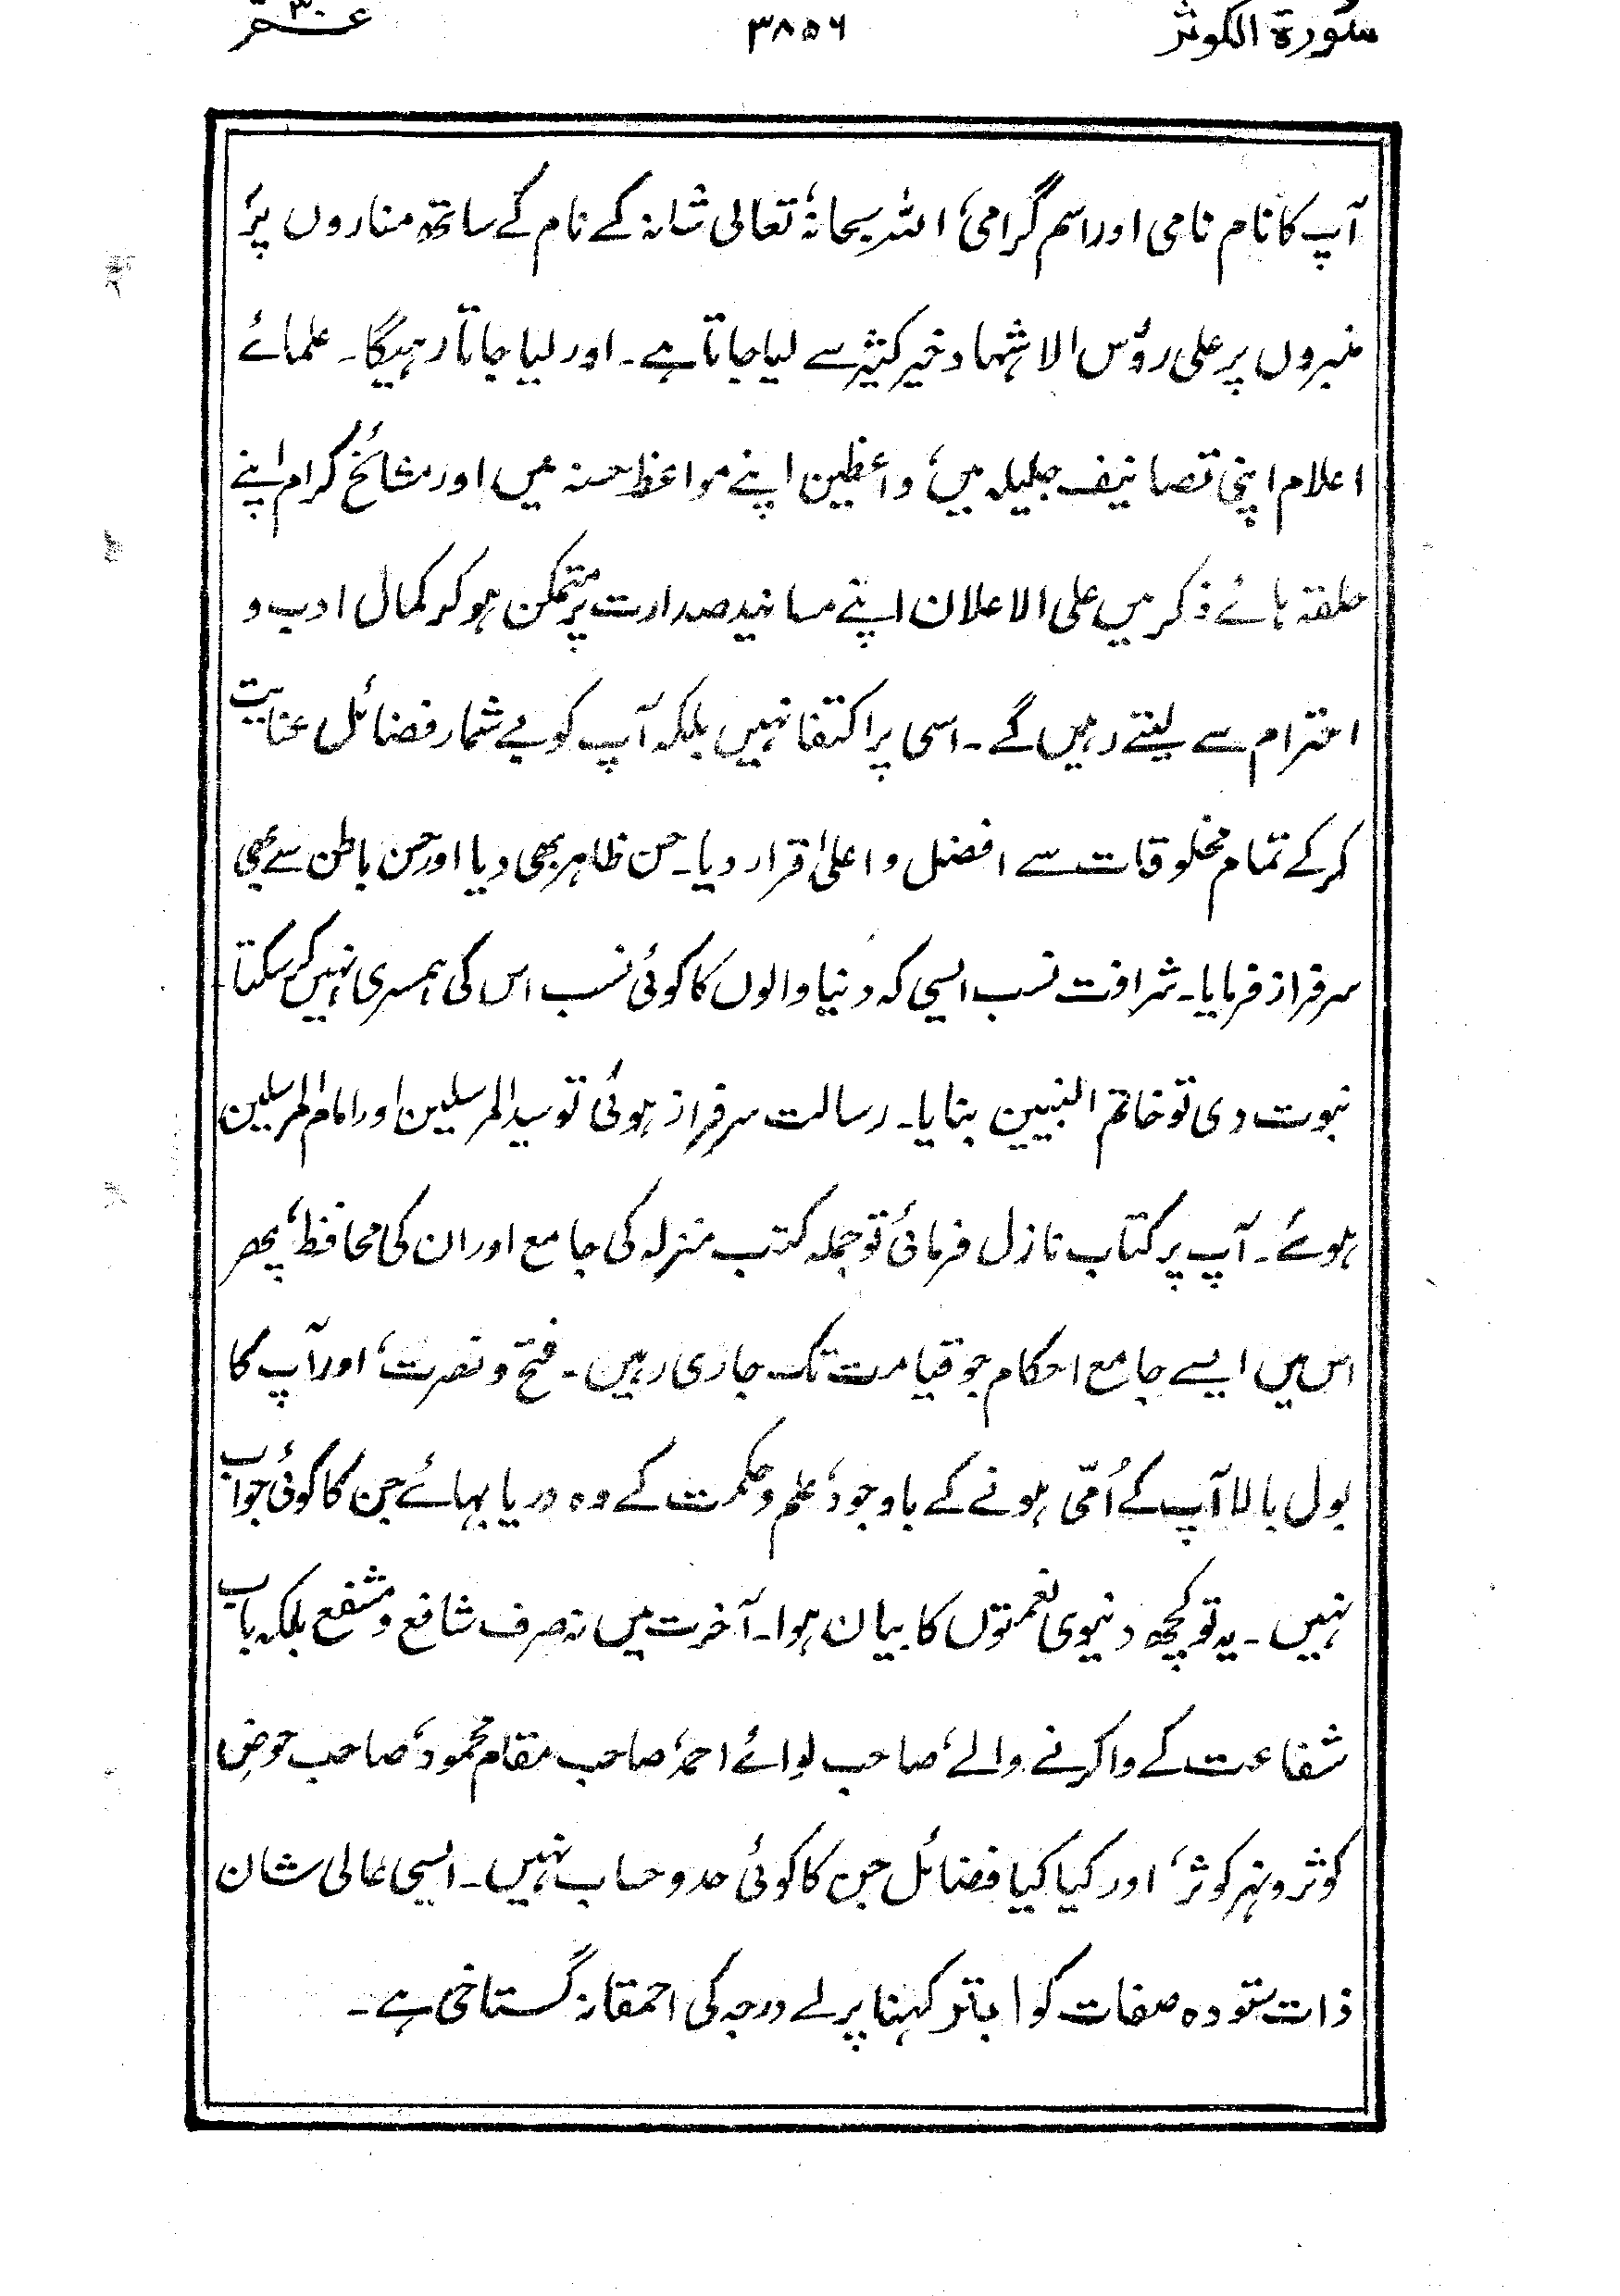 سورة الکوثر ۳۸۵۶ عـــم ۳۰
آپ کا نام نامی اور اسم گرامی، اللہ سبحانہٗ تعالی شانہ کے نام کے ساتھ مناروں پر،
منبروں پر علی رؤس الاشہاد خیر کثیر سے لیا جاتا ہے۔ اور لیا جاتا رہیگا۔ علمائے
اعلام اپنی تصانیف جلیلہ میں، واعظین اپنے مواعظ حسنہ میں اور مشائخ کرام اپنے
حلقہ ہائے ذکر میں علی الاعلان اپنے مسانید صدارت پر متمکن ہو کر کمال ادب و
احترام سے لیتے رہیں گے۔ اسی پر اکتفا نہیں بلکہ آپ کو بے شمار فضائل عنایت
کر کے تمام مخلوقات سے افضل و اعلیٰ قرار دیا۔ حسن ظاہر بھی دیا اور حسن باطن سے بھی
سرفراز فرمایا۔ شرافت نسب ایسی کہ دنیا والوں کا کوئی نسب اس کی ہمسری نہیں کر سکتا
نبوت دی تو خاتم النبیین بنایا۔ رسالت سرفراز ہوئی تو سید المرسلین اور امام المرسلین
ہوئے۔ آپ پر کتاب نازل فرمائی تو جملہ کتب منزلہ کی جامع اور ان کی محافظ، پھر
اس میں ایسے جامع احکام جو قیامت تک جاری رہیں۔ فتح و نصرت، اور آپ کا
بول بالا آپ کے اُمّی ہونے کے باوجود، علم و حکمت کے وہ دریا بہائے جن کا کوئی جواب
نہیں۔ یہ تو کچھ دنیوی نعمتوں کا بیان ہوا۔ آخرت میں نہ صرف شافع و مشفع بلکہ باب
شفاعت کے وا کرنے والے، صاحب لوائے احمد، صاحب مقام محمود، صاحب حوضِ
کوثر و نہر کوثر، اور کیا کیا فضائل جن کا کوئی حد و حساب نہیں۔ ایسی عالی شان
ذات ستودہ صفات کو ابتر کہنا پرلے درجہ کی احمقانہ گستاخی ہے۔